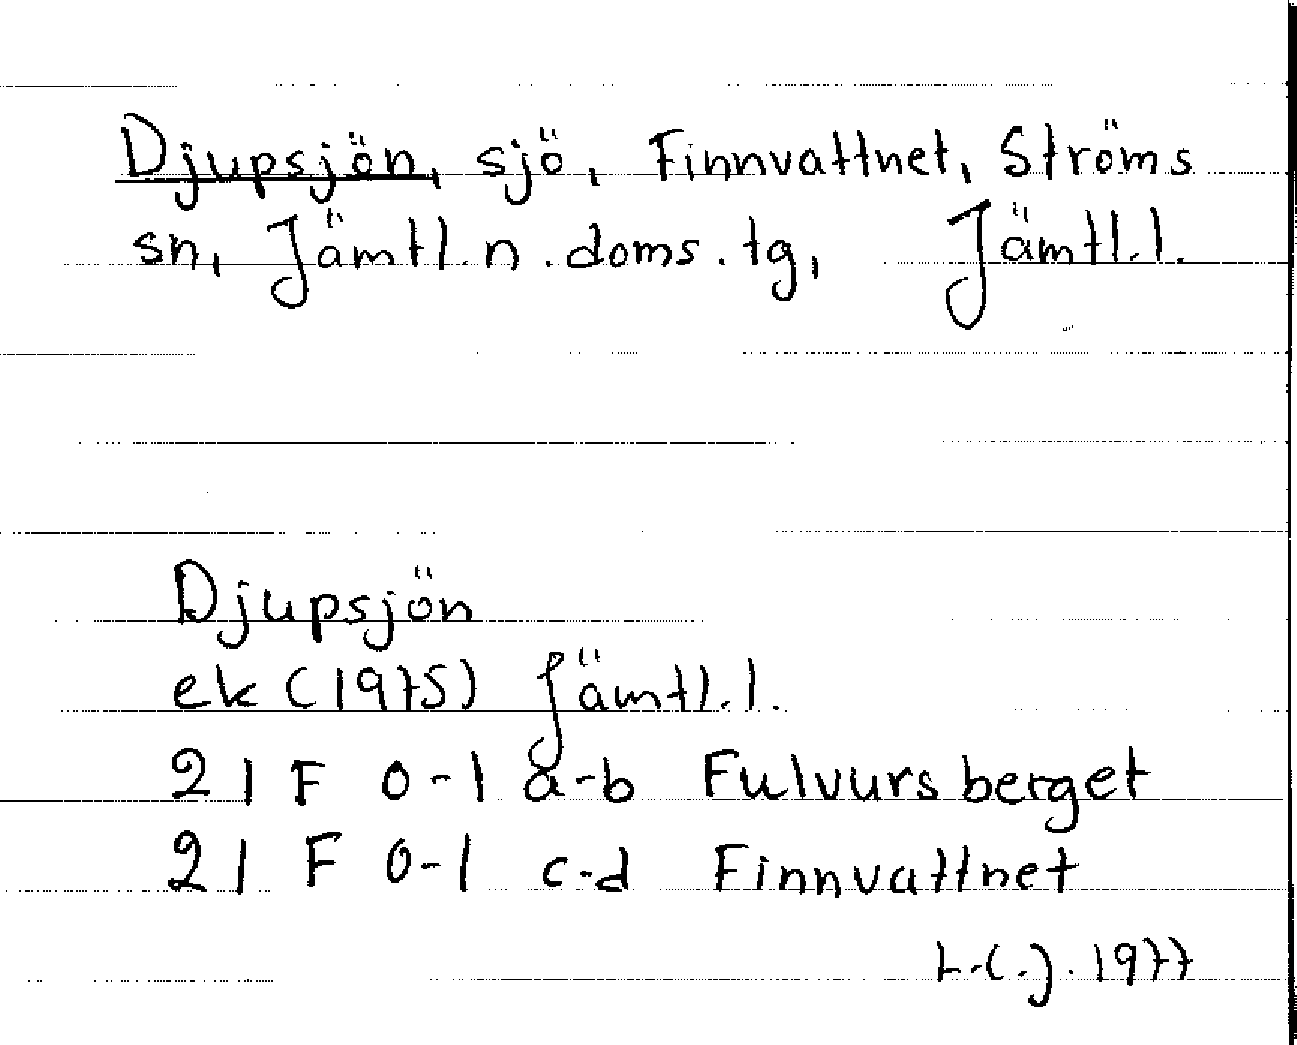 Djupsjön, sjö, Finnvattnet, Ströms
sn, Jämtl. n. doms. tg, Jämtl. l.
Djupsjön
ek (1975) Jämtl. l.
21 F 0-1 a-b Fulvursberget
21 F 0-1 c-d Finnvattnet
L.C.J. 1977